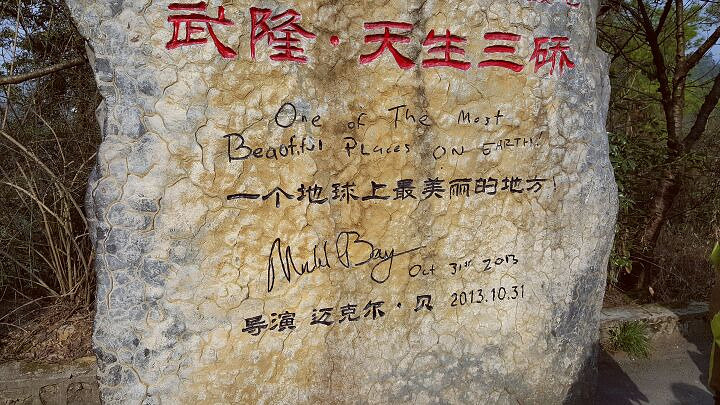 武隆·天生三硚
One of The Most
Beautiful Places ON EARTH!
一个地球上最美丽的地方!
Oct 31st 2013
导演 迈克尔·贝 2013.10.31